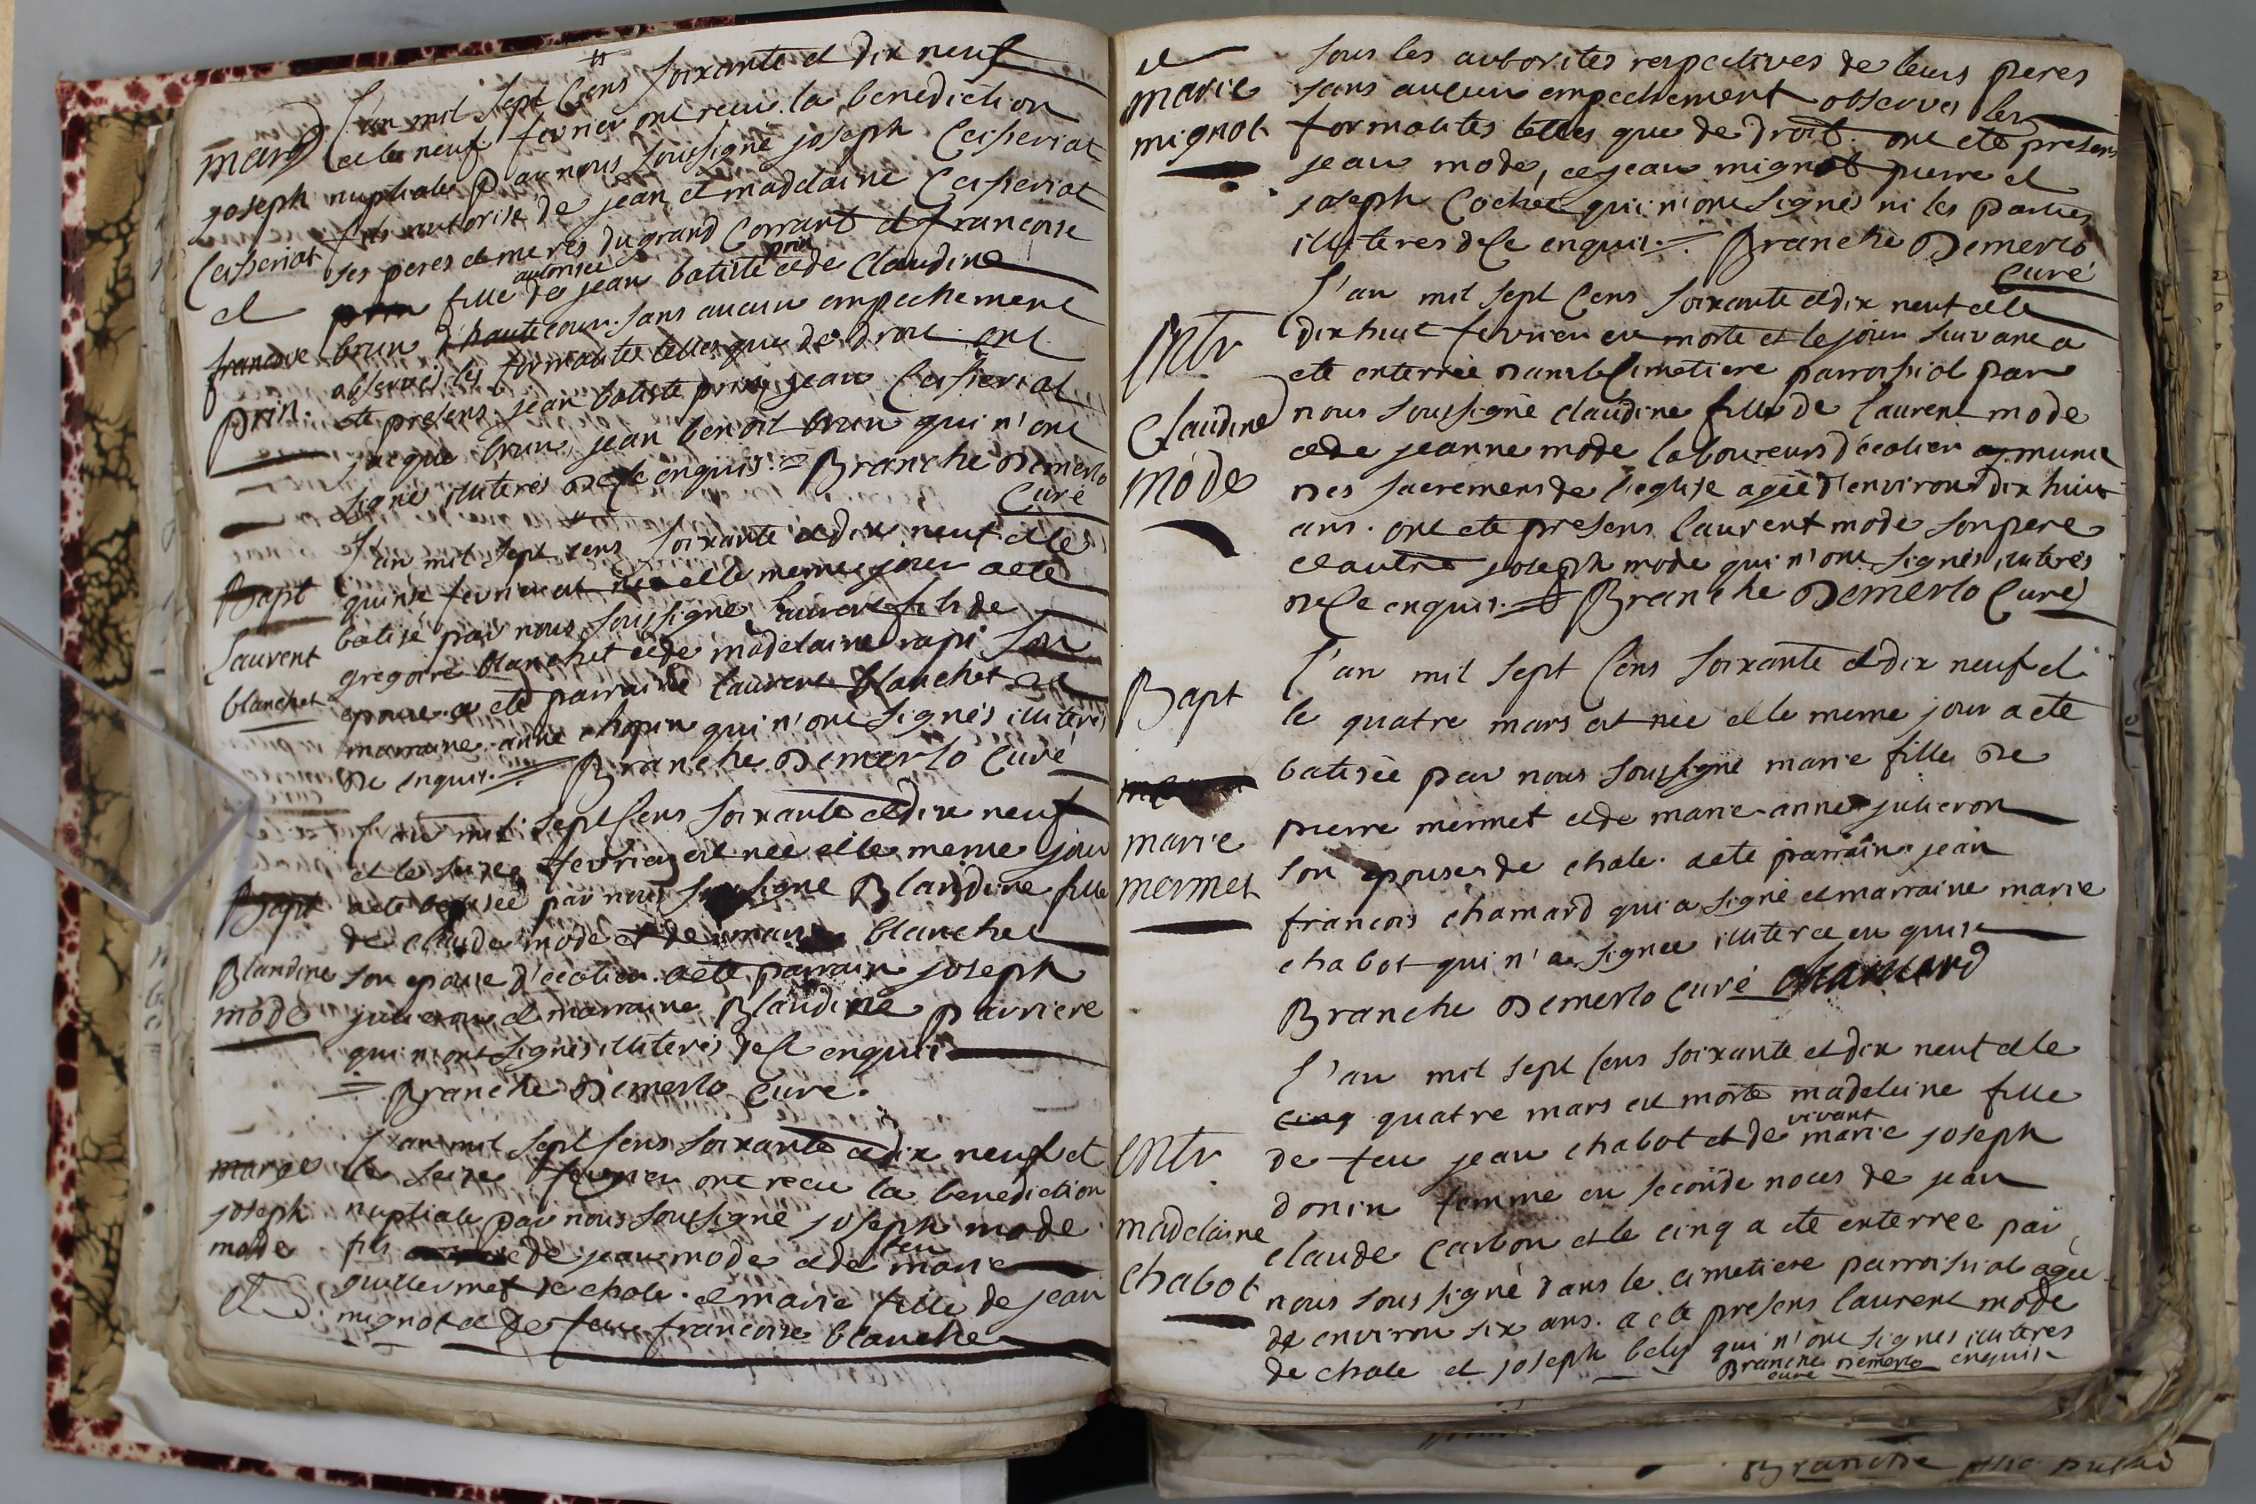 L'an mil sept cens soixante et dix neuf
et le neuf fevrier ont recu la benediction
nuptiale par nous soussigné joseph
fils autorisé de jean et madelaine
ses peres et meres du grand Corrant et francoise
prin
autorisée
fille de jean batiste et de Claudine
brun d'hautecour. sans aucun empechement
observés les formalites telles que de droit ont
ete presens jean batiste prin, jean
jacque brun, jean benoit brun qui n'ont
signé illiteres de ce enquis. = Branche Demerlo
Curé
mariage
joseph
et
francoise
prin.
L'an mil sept cens soixante et dix neuf et le
quinze fevrier est né et le meme jour a ete
batisé par nous soussigné Laurent fils de
gregoire blanchet et de madelaine rapi son
epouse. a ete parrain laurent blanchet et
marraine anne chapin qui n'ont signés illiteres
de enquis. = Branche Demerlo Curé
Bapt
Laurent
blanchet
L'an mil sept cens soixante et dix neuf
et le seize fevrier est née et le meme jour
a ete batisée par nous soussigné Blandine fille
de claude mode et de marie blanchet
son epouse d'ecotier. a ete parrain joseph
julieron et marraine Blandine parriere
qui n'ont signés illiteres de ce enquis
= Branche Demerlo Curé.
Bapt
Blandine
mode
L'an mil sept cens soixante et dix neuf et
le seize fevrier ont recu la benediction
nuptiale par nous soussigné joseph mode
feu
fils de jean mode et de marie
guillermet de chale. et marie fille de jean
mignot et de feu francoise blanche
mariage
joseph
mode
et
et
marie
mignot
sous les autorites respectives de leurs peres
sans aucun empechement observés les
formalites telles que de droit. ont ete presens
jean mode, et jean mignot pierre et
joseph Cochet qui n'ont signés ni les parties
illiteres de ce enquis. = Branche Demerlo
Curé
L'an mil sept cens soixante et dix neuf et le
dix huit fevrier est morte et le jour suivant a
ete enterrée dans le Cimetiere parroissial par
nous soussigné claudine fille de laurent mode
et de jeanne mode laboureurs d'ecotier munie
des sacremens de l'eglise agée d'environ dix huit
ans. ont ete presens laurent mode son pere
et autre joseph mode qui n'ont signés illiteres
de ce enquis. = Branche Demerlo Curé
Entr
Claudine
mode
L'an mil sept cens soixante et dix neuf et
le quatre mars est née et le meme jour a ete
batisée par nous soussigné marie fille de
pierre mermet et de marie-anne julieron
son epouse de chale. a ete parrain jean
francois chamard qui a signé et marraine marie
chabot qui n'a signée illiterée enquise
Branche Demerlo Curé chamard
Bapt
marie
mermet
L'an mil sept cens soixante et dix neuf et le
cinq quatre mars est morte madeleine fille
vivant
de feu jean chabot et de marie joseph
donin femme en seconde noces de jean
claude Carbon et le cinq a ete enterree par
nous soussigné dans le cimetiere parroissial agée
de environ six ans. a ete presens laurent mode
de chale et joseph bely qui n'ont signés illiteres
Branche Demerlo enquis
curé
Entr
madelaine
chabot
Branche